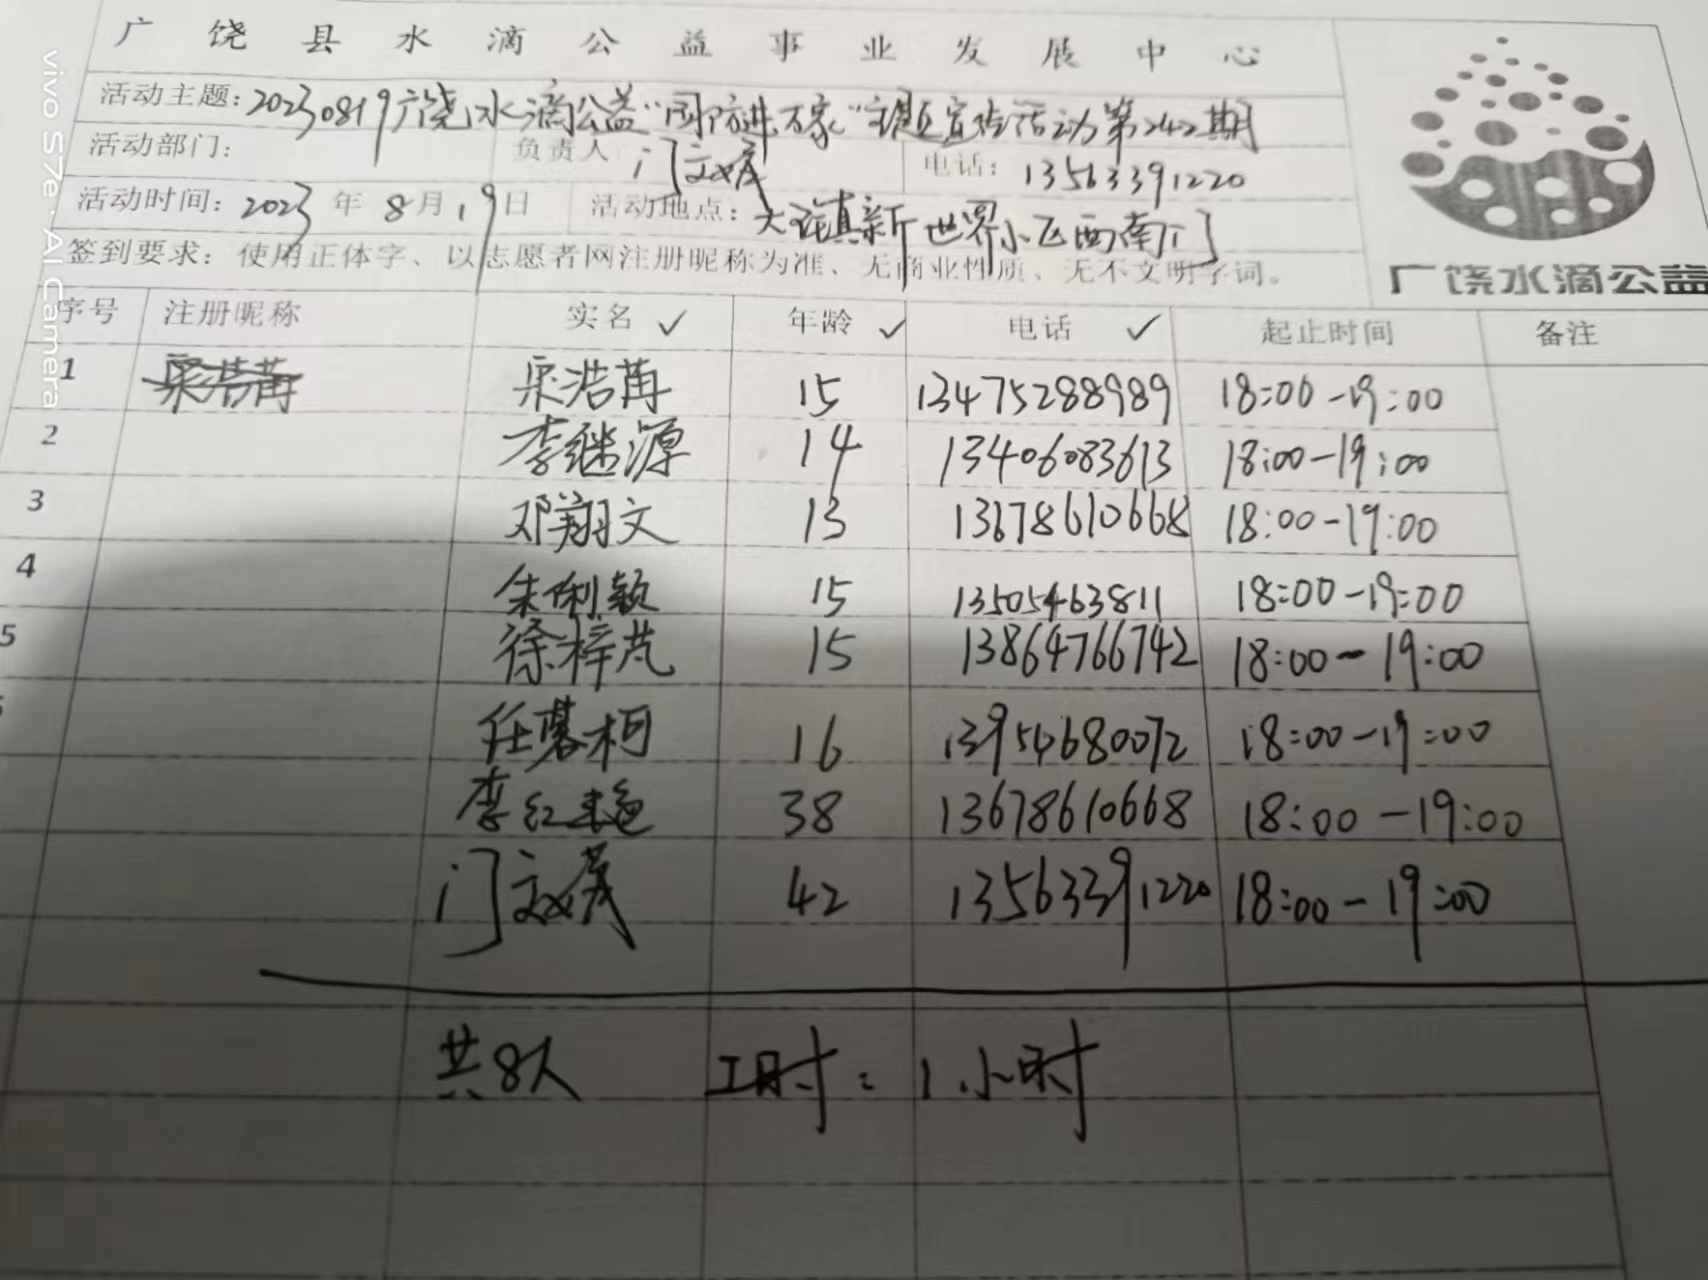 广饶县水滴公益事业发展中心
活动主题：20230819广饶水滴公益“国防进万家”主题宣传活动第242期
活动部门： 负责人 门 电话：13563391220
活动时间：2023年8月19日 活动地点：大王镇新世界小区西南门
签到要求：使用正体字、以志愿者网注册昵称为准、无商业性质、无不文明字词。
广饶水滴公益
序号 注册昵称 实名 ✓ 年龄 ✓ 电话 ✓ 起止时间 备注
1 浩苒 浩苒 15 13475288989 18:00-19:00
2 李继源 14 13406083613 18:00-19:00
3 邓翔文 13 13678610668 18:00-19:00
4 朱俐颖 15 13505463811 18:00-19:00
5 徐梓芃 15 13864766742 18:00-19:00
任慕柯 16 13954680072 18:00-19:00
李红艳 38 13678610668 18:00-19:00
门 42 13563391220 18:00-19:00
共8人 工时：1小时
vivo S7e · AI Camera